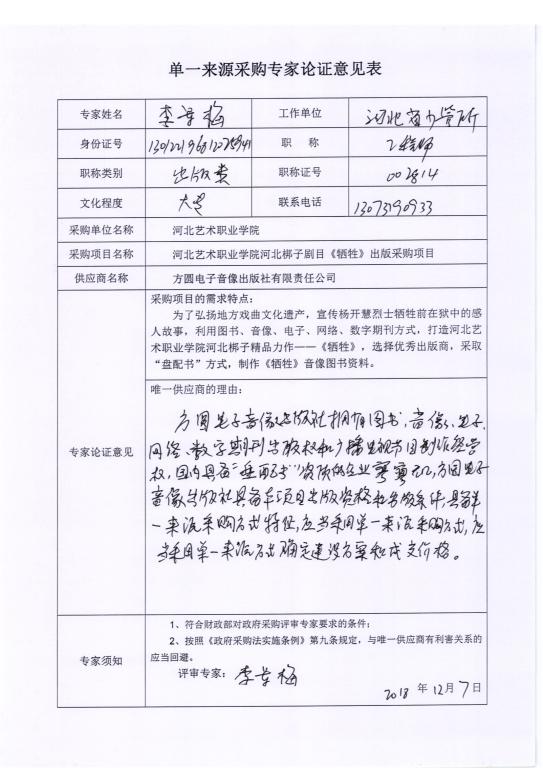 单一来源采购专家论证意见表
专家姓名 李 梅 工作单位 河北省
身份证号 职 称 工程师
职称类别 出版类 职称证号 002814
文化程度 大专 联系电话 13073190933
采购单位名称 河北艺术职业学院
采购项目名称 河北艺术职业学院河北梆子剧目《牺牲》出版采购项目
供应商名称 方圆电子音像出版社有限责任公司
专家论证意见
采购项目的需求特点：
为了弘扬地方戏曲文化遗产，宣传杨开慧烈士牺牲前在狱中的感
人故事，利用图书、音像、电子、网络、数字期刊方式，打造河北艺
术职业学院河北梆子精品力作——《牺牲》，选择优秀出版商，采取
“盘配书”方式，制作《牺牲》音像图书资料。
唯一供应商的理由：
方圆电子音像出版社拥有图书、音像、电子、
网络、数字期刊出版权和广播电视节目制作经营
权，国内具备“ 配书”资质的企业寥寥无几，方圆电子
音像出版社具备本项目出版资格和出版条件，具备单
一来源采购方式特征，应当采用单一来源采购方式，应
当采用单一来源方式确定建设方案和成交价格。
专家须知
1、符合财政部对政府采购评审专家要求的条件；
2、按照《政府采购法实施条例》第九条规定，与唯一供应商有利害关系的
应当回避。
评审专家： 李 梅
2018 年 12月 7日